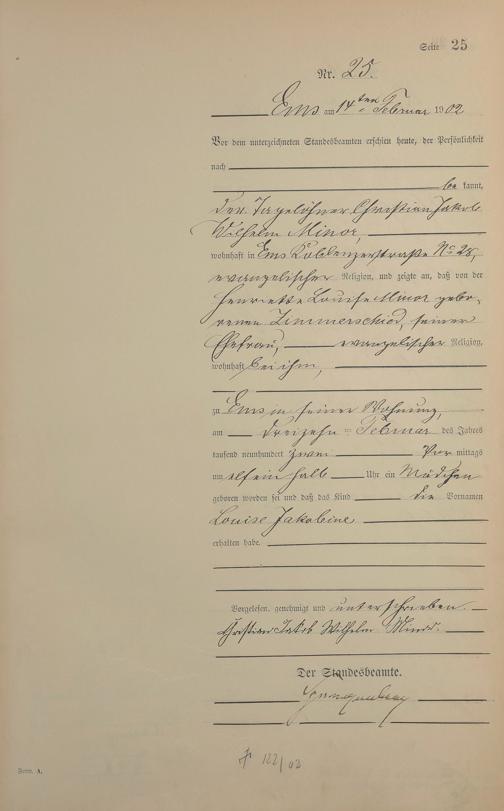 Seite 25
Nr. 25.
Ems am 14ten Februar 1902
Vor dem unterzeichneten Standesbeamten erschien heute, der Persönlichkeit
nach
be kannt,
der Tagelöhner Christian Jakob
Wilhelm Minor,
wohnhaft in Ems Koblenzerstraße No 28,
evangelischer Religion, und zeigte an, daß von der
Henriette Louise Minor gebo-
renen Zimmerschied, seiner
Ehefrau, evangelischer Religion,
wohnhaft bei ihm,
zu Ems in seiner Wohnung,
am dreizehn = Februar des Jahres
tausend neunhundert zwei Vor mittags
um elf ein halb Uhr ein Mädchen
geboren worden sei und daß das Kind die Vornamen
Louise Jakobine
erhalten habe.
Vorgelesen, genehmigt und unterschrieben.
Christian Jakob Wilhelm Minor.
Der Standesbeamte.
Form. A.